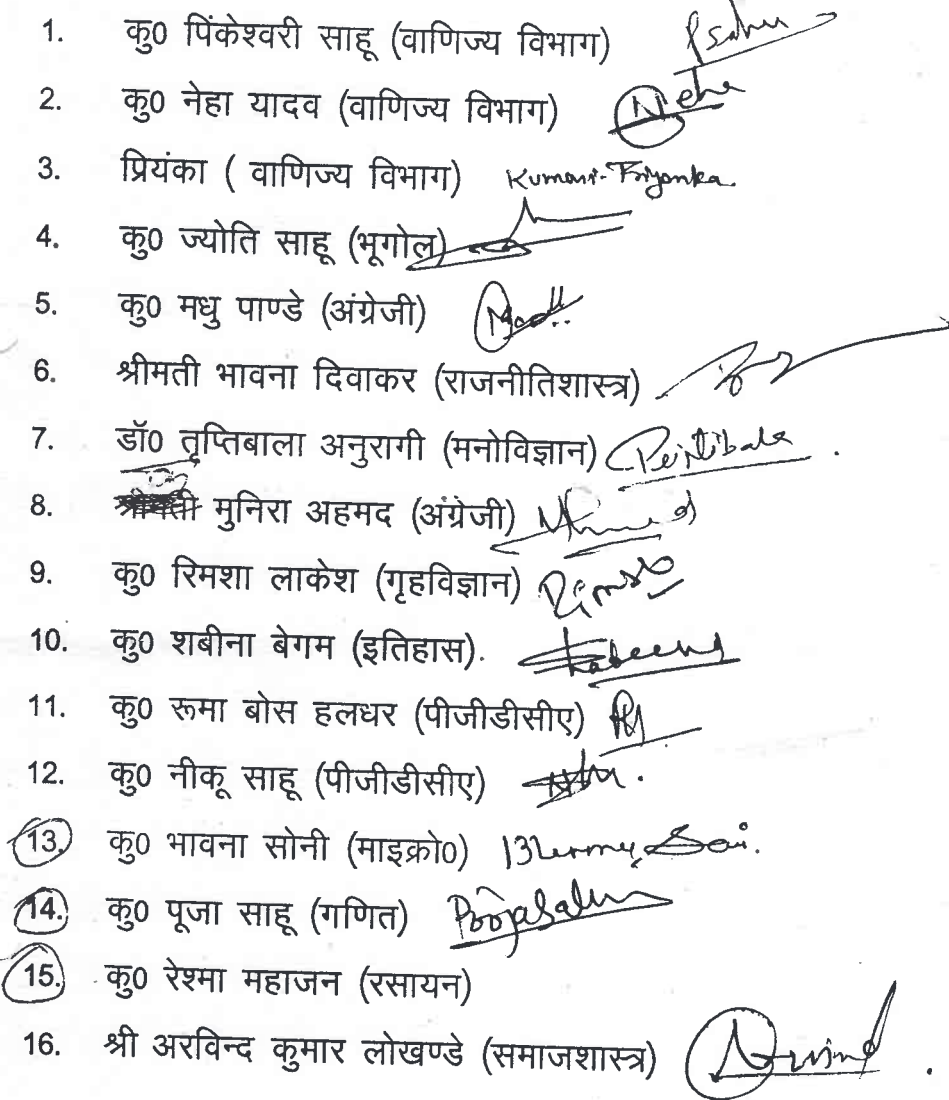 1. कु0 पिंकेश्वरी साहू (वाणिज्य विभाग) Psahu
2. कु0 नेहा यादव (वाणिज्य विभाग) Neha
3. प्रियंका ( वाणिज्य विभाग) Kumari Priyanka
4. कु0 ज्योति साहू (भूगोल)
5. कु0 मधु पाण्डे (अंग्रेजी)
6. श्रीमती भावना दिवाकर (राजनीतिशास्त्र)
7. डॉ0 तृप्तिबाला अनुरागी (मनोविज्ञान)
8. श्रीमती मुनिरा अहमद (अंग्रेजी)
9. कु0 रिमशा लाकेश (गृहविज्ञान)
10. कु0 शबीना बेगम (इतिहास).
11. कु0 रूमा बोस हलधर (पीजीडीसीए)
12. कु0 नीकू साहू (पीजीडीसीए)
13. कु0 भावना सोनी (माइक्रो0)
14. कु0 पूजा साहू (गणित) PoojaSahu
15. कु0 रेश्मा महाजन (रसायन)
16. श्री अरविन्द कुमार लोखण्डे (समाजशास्त्र) Arvind